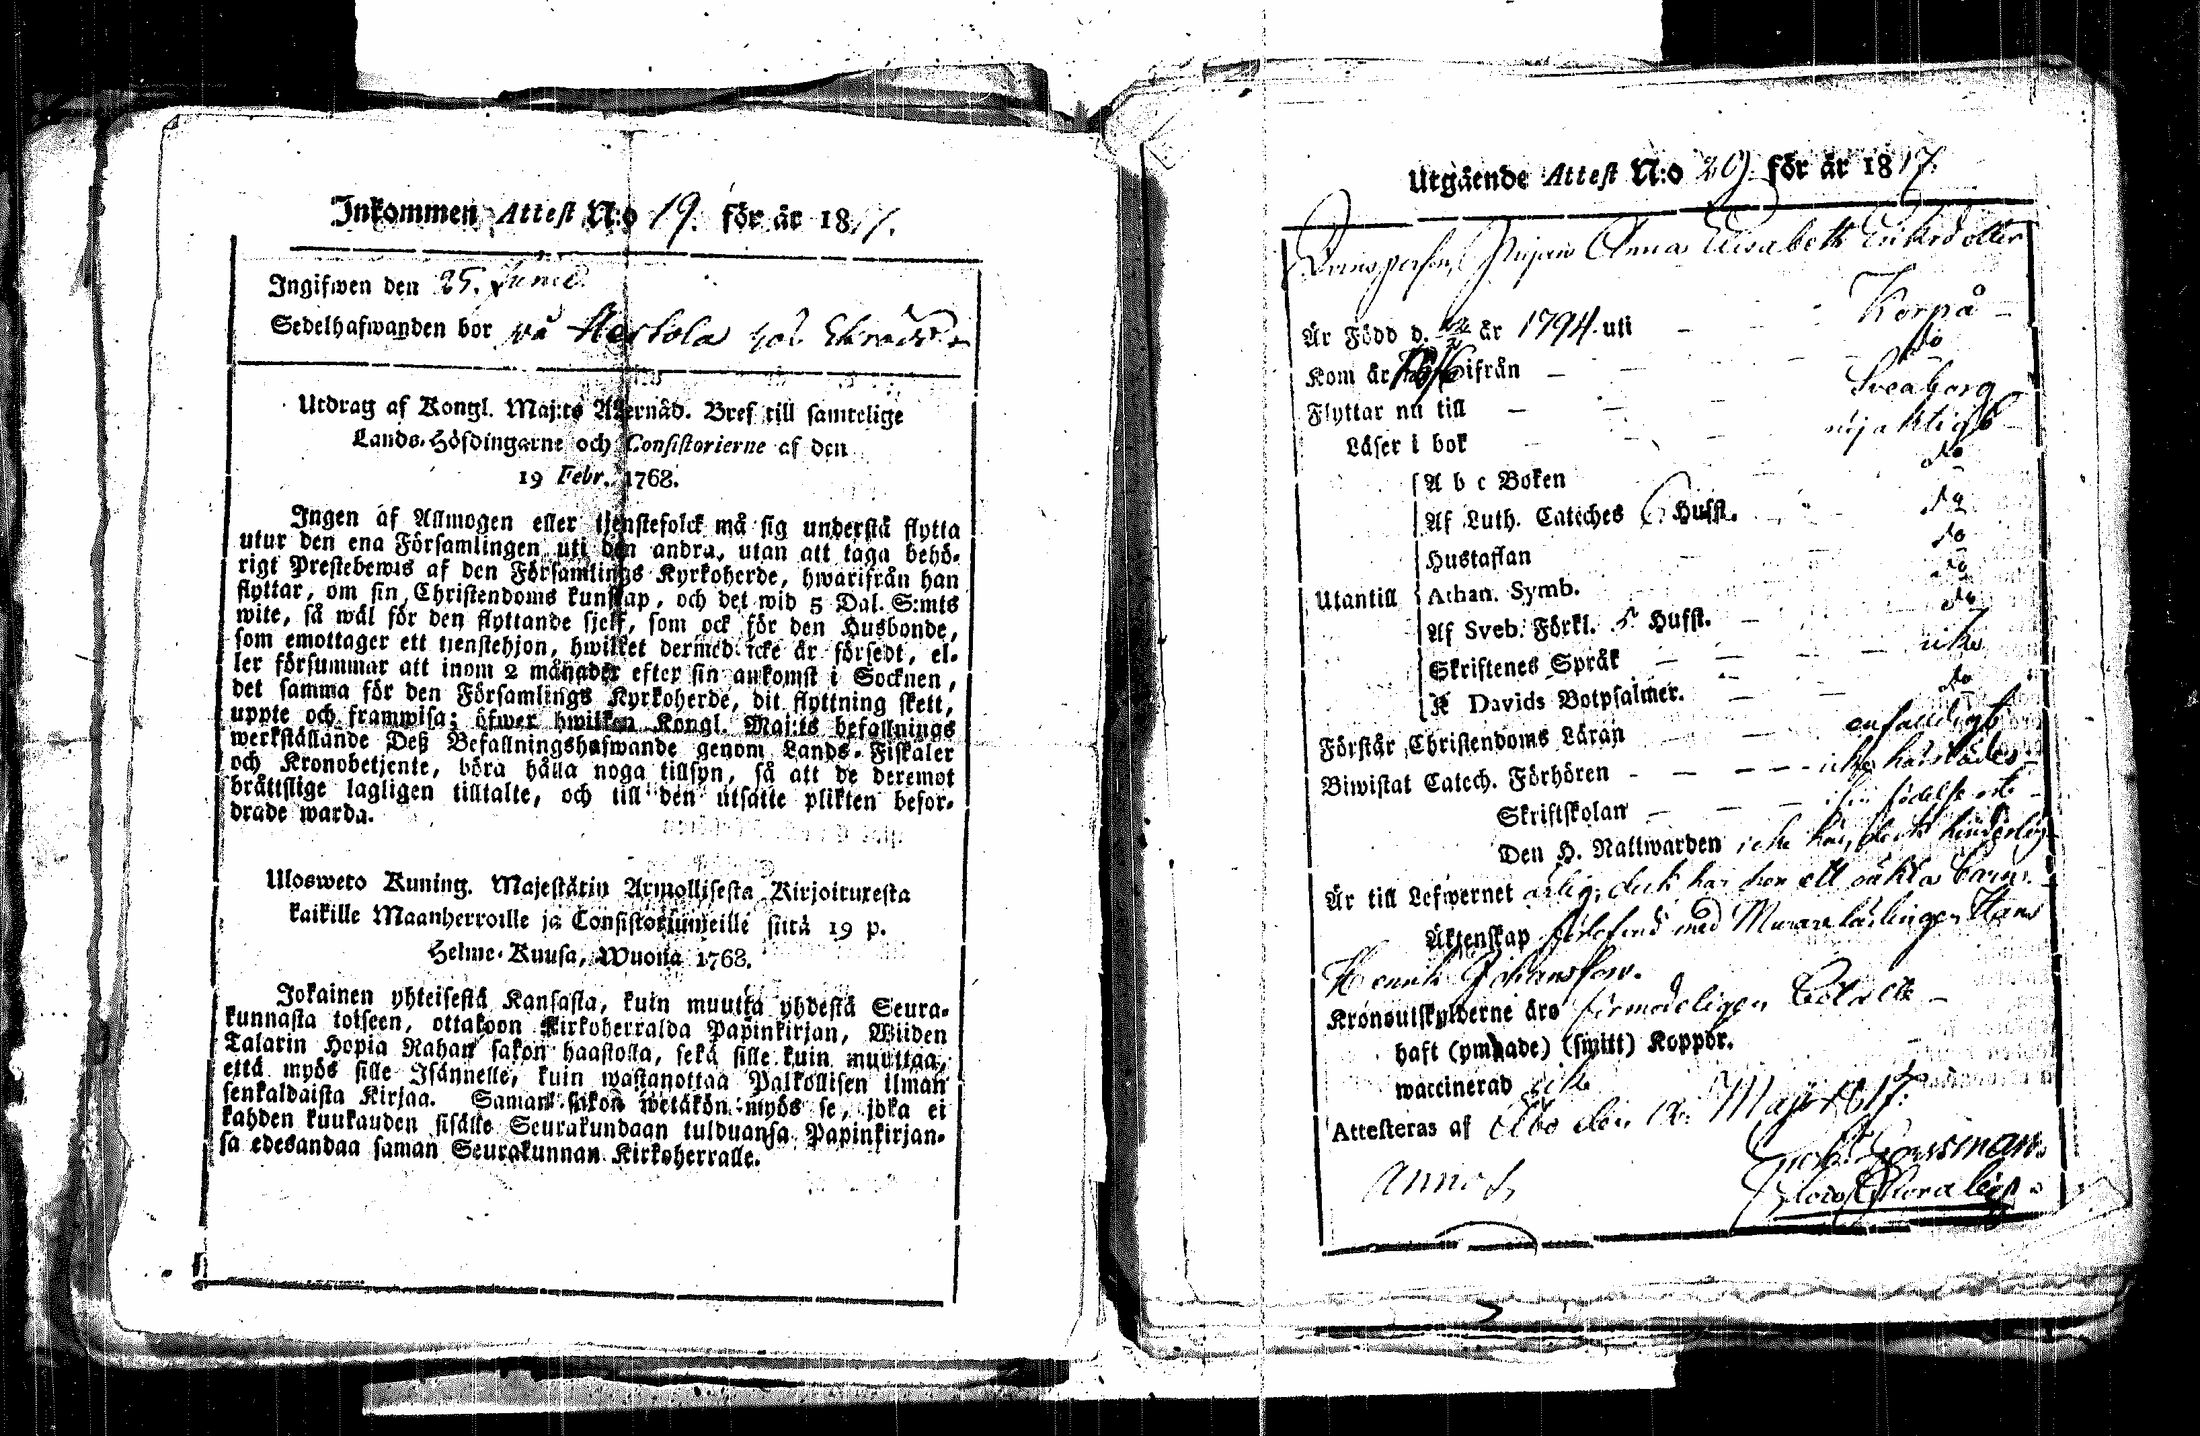 Inkommen Attest N:o 19. för år 1817.
Ingifwen den 25. Junii
Sedelhafwanden bor på hos
Utdrag af Kongl. Maj:ts Allernåd. Bref till samtelige
Lands-Höfdingarne och Consistorierne af den
19 Febr. 1768.
Ingen af Allmogen eller tjenstefolck må sig understå flytta
utur den ena Församlingen uti den andra, utan att taga behö-
rigt Prestebewis af den Församlings Kyrkoherde, hwarifrån han
flyttar, om sin Christendoms kunskap, och det wid 5 Dal. S:mts
wite, så wäl för den flyttande sjelf, som ock för den Husbonde,
som emottager ett tjenstehjon, hwilket dermed icke är försedt, el-
ler försummar att inom 2 månader efter sin ankomst i Socknen,
det samma för den Församlings Kyrkoherde, dit flyttning skett,
uppte och framwisa; öfwer hwilken Kongl. Maj:ts befallnings
werkställande Deß Befallningshafwande genom Lands-Fiskaler
och Kronobetjente, böra hålla noga tillsyn, så att de deremot
bråttslige lagligen tilltalte, och till den utsatte plikten befor-
drade warda.
Ulosweto Kuning. Majestätin Armollisesta Kirjoituxesta
kaikille Maanherroille ja Consistoriumeille siitä 19 p.
Helme-Kuusa, Wuona 1768.
Jokainen yhteisestä Kansasta, kuin muutta yhdestä Seura-
kunnasta toiseen, ottakoon Kirkoherralda Papinkirjan, Wiiden
Talarin Hopia Rahan sakon haastolla, sekä sille kuin muuttaa,
että myös sille Isännelle, kuin wastanottaa Palkollisen ilman
senkaldaista Kirjaa. Saman sakon wetäkön myös se, joka ei
kahden kuukauden sisälle Seurakundaan tulduansa Papinkirjan-
sa edesandaa saman Seurakunnan Kirkoherralle.
Utgående Attest N:o 209. för år 1817.
Pigan Anna Elisabeth
Är Född d. år 1794. uti Korpå
Kom år 1816 ifrån do
Flyttar nu till Sveaborg
Läser i bok nöjaktigt
Utantill
A b c Boken do
Af Luth. Cateches 6 Hufst. do
Hustaflan do
Athan. Symb. do
Af Sveb. Förkl. 5 Hufst. do
Skriftenes Språk icke
K Davids Botpsalmer. do
Förstår Christendoms Läran enfaldigt
Biwistat Catech. Förhören icke härstädes
Skriftskolan i sin födelse ort
Den H. Nattwarden icke här, dock hinderlös
Är till Lefwernet ärlig, dock har hon ett oäkta barn.
Äktenskap med Murarelärlingen Hans
Henrik Johansson.
Kronoutskylderne äro förmodeligen betalte
haft (ympade) (smitt) Koppor.
waccinerad icke
Attesteras af Åbo den 12. Maji 1817.